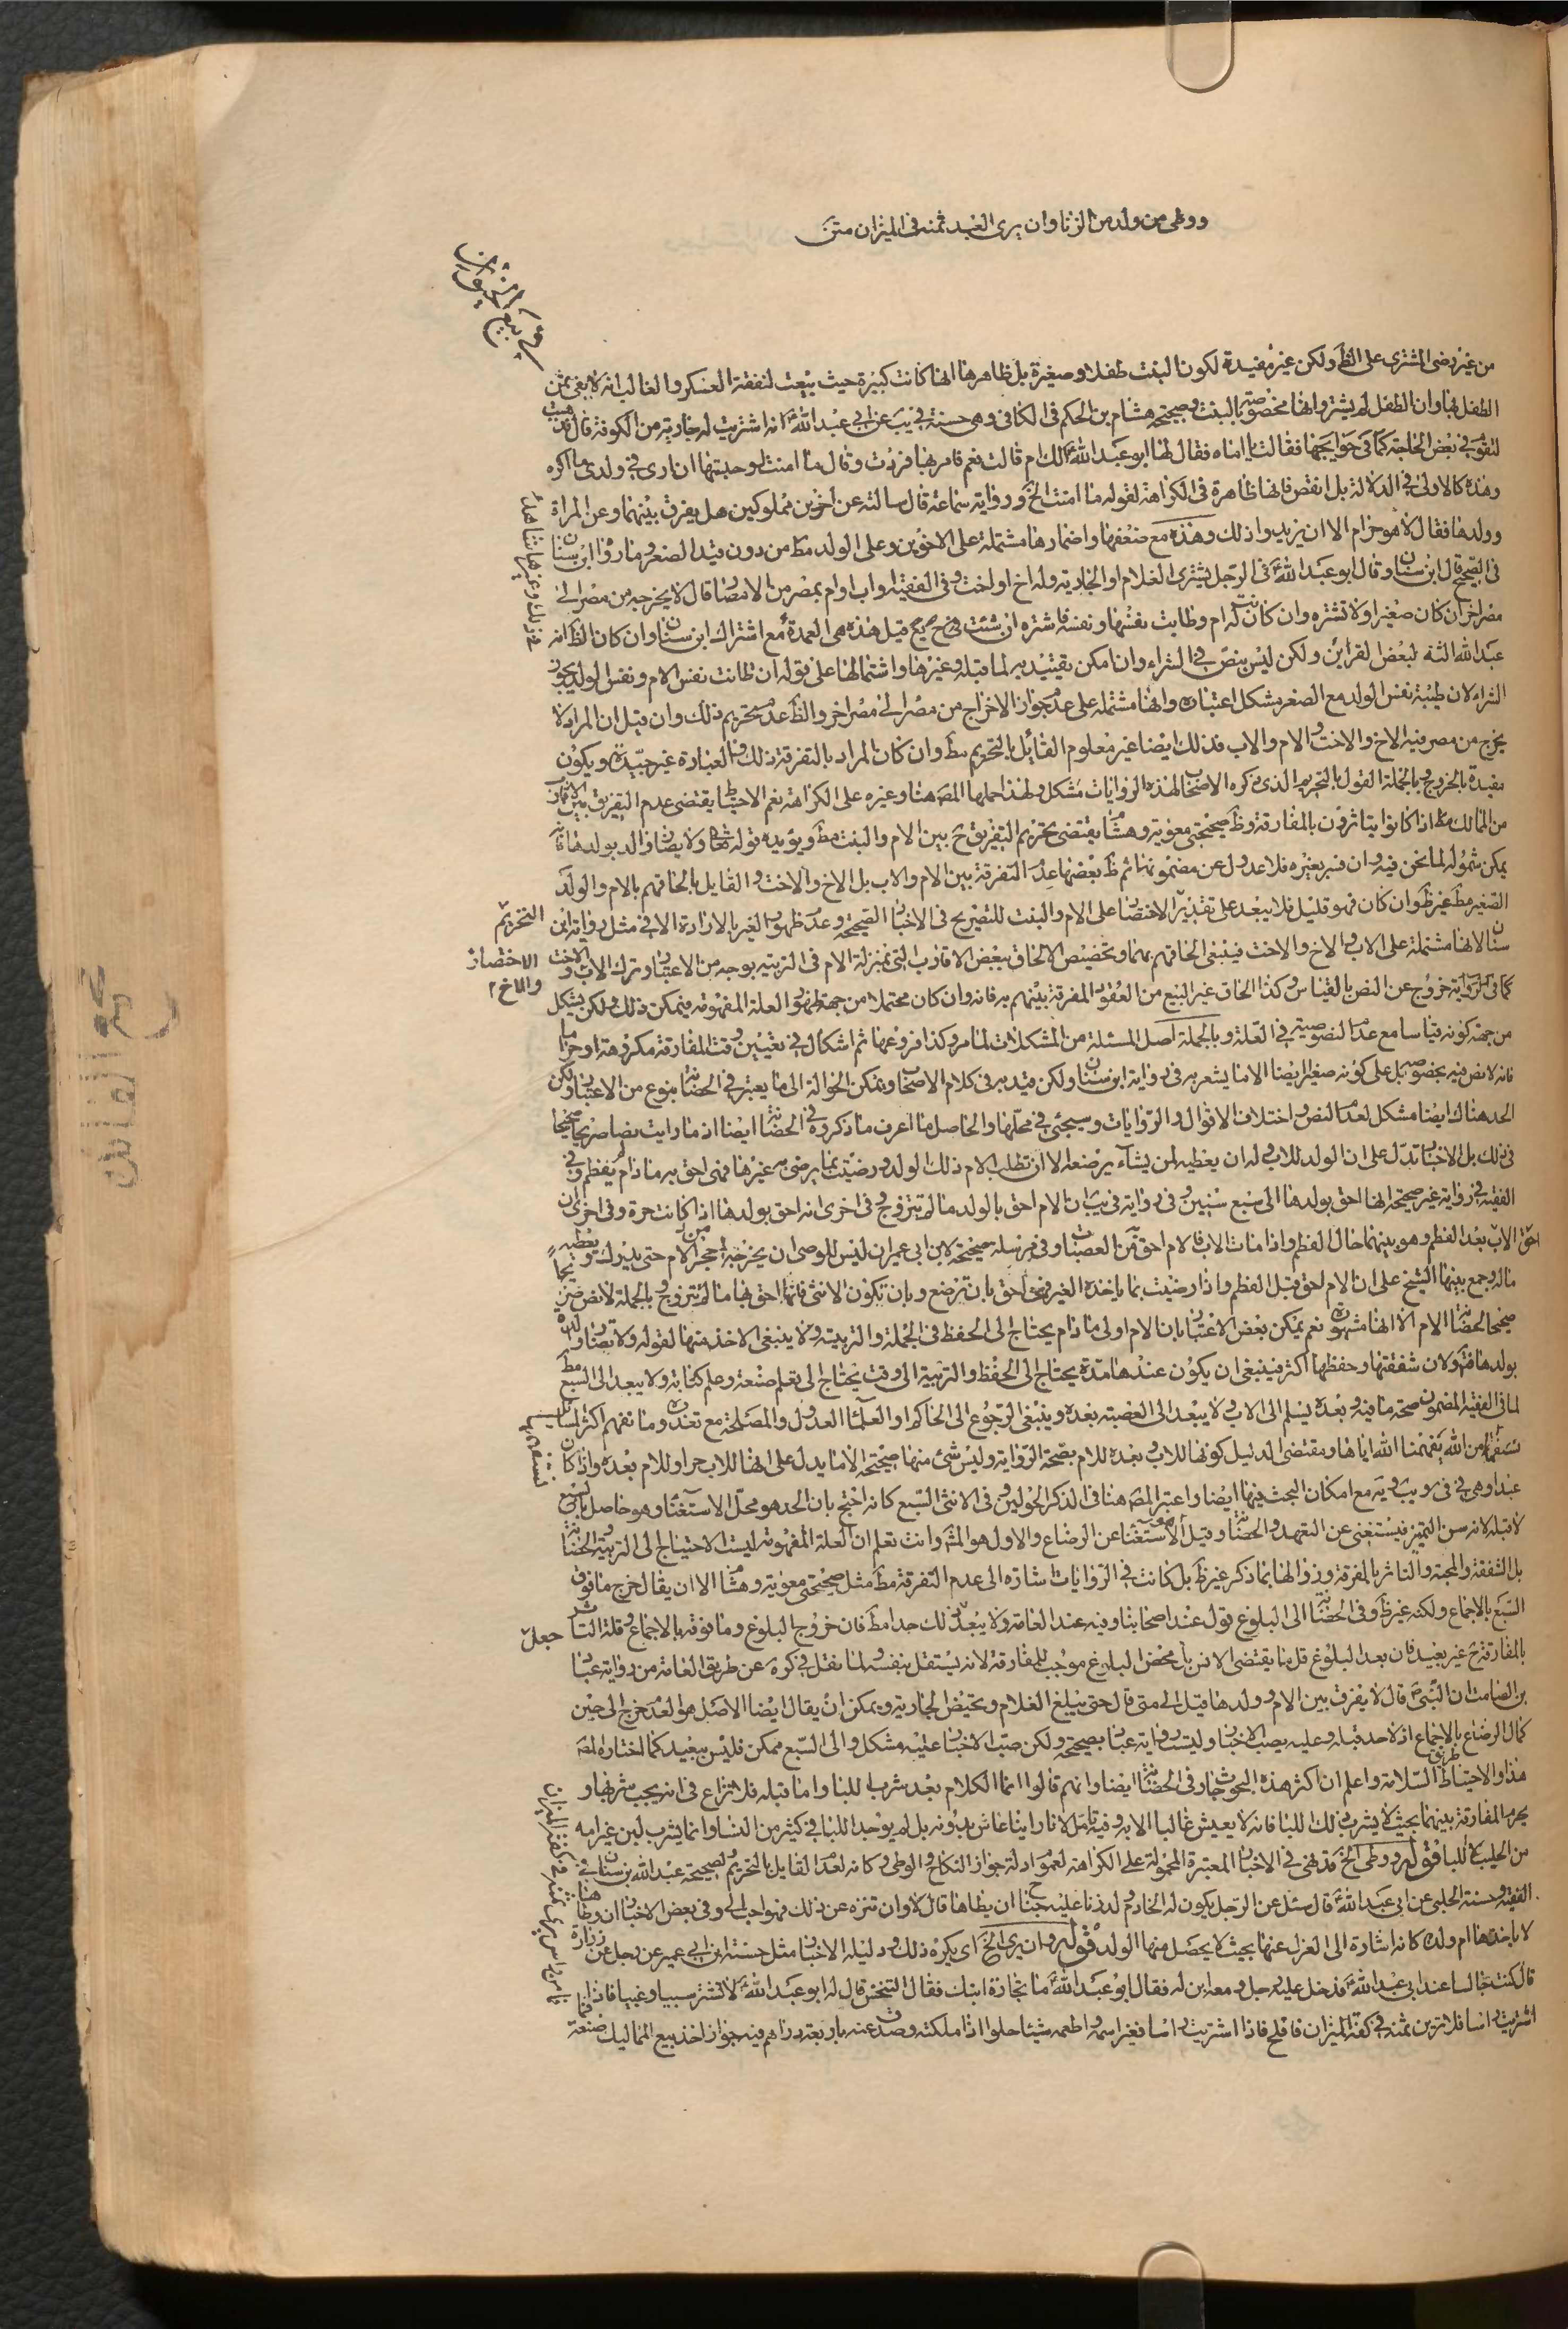 ووطی من ولد من الزنا وان یری العبد ثمنه فی المیزان متن
فی بیع الحیوان
من غیر رضی المشتری علی الظ ولکن غیر مفیدة لکون البنت طفلا وصغیرة بل ظاهرها انها کانت کبیرة حیث بیعت لنفقة العسکر والغالب انه لا یفی بثمن
الطفل بها وان الطفل لم یشتر وانها مخصوصة بالبنت وصحیحة هشام بن الحکم فی الکافی وهی حسنة فی یب عن ابی عبد الله ع انه اشتریت له جاریة من الکوفة قال فذهبت
لتقوم فی بعض الحاجة کما فی حوایجها فقالت یا اماه فقال لها ابو عبد الله ع الک ام قالت نعم فامر بها فردت وقال ما امنت لو حبستها ان اری فی ولدی ما اکره
وهذه کالاولی فی الدلالة بل انقص فانها ظاهرة فی الکراهة لقوله ما امنت الخ وروایة سماعة قال سالته عن اخوین مملوکین هل یفرق بینهما وعن المراة
وولدها فقال لا هو حرام الا ان یریدوا ذلک وهذه مع ضعفها واضمارها مشتملة علی الاخوین وعلی الولد مط من دون قید الصغر وما رواه ابن سنان
فی الصحیح قال ابن سنان وقال ابو عبد الله ع فی الرجل یشتری الغلام او الجاریة وله اخ او اخت وفی الفقیه او اب او ام بمصر من الامصار قال لا یخرجه من مصر الی
مصر اخر ان کان صغیرا ولا تشتره وان کان له ام وطابت نفسها ونفسه فاشتره ان شئت فی ح قیل هذه هی العمدة مع اشتراک ابن سنان وان کان الظ انه
عبد الله الثقه لبعض القراین ولکن لیس بنص فی الشراء وان امکن تقییده به لما قبله وغیرها واشتمالها علی قوله ان طابت نفس الام ونفس الولد یجوز
الشراء لان طیبة نفس الولد مع الصغر مشکل اعتباره وانها مشتملة علی عدم جواز الاخراج من مصر الی مصر اخر والظ عدم تحریم ذلک وان قیل ان المراد لا
یخرج من مصر فیه الاخ والاخت والام والاب فذلک ایضا غیر معلوم القائل بالتحریم مط وان کان المراد بالتفرقة ذلک فالعبارة غیر جیدة ویکون
مقیدة بالخروج وبالجملة القول بالتحریم الذی ذکره الاصحاب لهذه الروایات مشکل ولهذا حملها المص هنا وغیره علی الکراهة نعم الاحتیاط یقتضی عدم التفریق بین الاقارب
من الممالک مط اذا کانوا یتاثرون بالمفارقة وظ صحیحتی معویة وهشام یقتضی تحریم التفریق ح بین الام والبنت مط ویؤیده قوله تعالی ولا یضار والد بولدها فانه
یمکن شموله لما نحن فیه وان فسر بغیره فلا عدول عن مضمونها ثم ظ بعضها عدم التفرقة بین الام والاب بل الاخ والاخت والقایل بالحاقهم بالام والولد
الصغیر مط غیر ظ وان کان فهو قلیل فلا یبعد علی تقدیر الاختصار علی الام والبنت للتصریح فی الاخبار الصحیحة وعدم ظهور الغیر بالارادة الا فی مثل روایة ابن
سنان الا انها مشتملة علی الاب والاخ والاخت فینبغی الحاقهم بهما وتخصیص الالحاق ببعض الاقارب التی بمنزلة الام فی التربیة بوجه من الاعتبار وترک الاب والاخت
التحریم
الاختصار
والاخ
کما فی الروایة خروج عن النص بالقیاس وکذا الحاق غیر البیع من العقود المفرقة بینهم به فانه وان کان محتملا من جهة ظهور العلة المفهومة فیمکن ذلک ولکن یشکل
من جهة کونه قیاسا مع عدم النصوصیة فی العلة وبالجملة اصل المسئلة من المشکلات لما مر وکذا فروعها ثم اشکال فی تعیین وقت المفارقة مکروهة او حراما
فانه لا نص فیه بخصوصه بل علی کونه صغیرا ایضا الا ما یشعر به فی روایة ابن سنان ولکن قید به فی کلام الاصحاب ویمکن الحوالة الی ما یعتبر فی الحضانة بنوع من الاعتبار ولکن
الحد هناک ایضا مشکل لعدم النص واختلاف الاقوال والروایات وسیجئ فی محلها والحاصل ما اعرف ما ذکروه فی الحضانة ایضا اذ ما رایت نصا صریحا صحیحا
فی ذلک بل الاخبار تدل علی ان الولد للاب وله ان یعطیه لمن یشاء یرضعه الا ان تطلب الام ذلک الولد ورضیت بما یرضی به غیرها فهی احق به ما دام لم یفطم وفی
الفقیه فی روایة غیر صحیحة انها احق بولدها الی سبع سنین وفی روایة فی یب ان الام احق بالولد ما لم تتزوج وفی اخری انه احق بولدها اذا کانت حرة وفی اخری ان
احق الاب بعد الفطم وهو بینهما حال الفطم واذا مات الاب فالام احق من العصبات وفی مرسله صحیحة لابن ابی عمیر ان لیس للوصی ان یخرجه من حجر الام حتی یدرک ویعطیه
ماله وجمع بینها الشیخ علی ان الام احق قبل الفطم واذا رضیت بما یاخذه الغیر فهی احق بان ترضع وبان تکون الانثی فانها احق بها ما لم تتزوج وبالجملة لا نص صریحا
صحیحا لحضانة الام الا انها مشهورة نعم یمکن بعض الاعتبار بان الام اولی ما دام یحتاج الی الحفظ فی الجملة والتربیة ولا ینبغی الاخذ منها لقوله ولا تضار والدة
بولدها فتو ولان شفقتها وحفظها اکثر فینبغی ان یکون عندها مدة یحتاج الی الحفظ والتربیة الی وقت یحتاج الی تعلم صنعة وعلم کتابة ولا یبعد الی السبع مط
لما فی الفقیه المضمون صحة ما فیه وبعده یسلم الی الاب ولا یبعد الی العصبة بعده وینبغی الرجوع الی الحاکم او العلماء العدول والمصلحة مع تعذره وما نفهم اکثر المسائل
من الله یفهمنا الله ایاها ومقتضی الدلیل کونها للاب وبعده للام بصحة الروایة ولیس شئ منها صحیحة الا ما یدل علی انها للاب حرا وللام بعده واذا کان
عبدا وهی فی یب ویه مع امکان البحث فیها ایضا واعتبر المص هنا فی الذکر الحولین وفی الانثی السبع کانه احتج بان الحد هو محل الاستغناء وهو حاصل بالسبع
لا قبله لانه سن التمیز فیستغنی عن التعهد والحضانة وقیل الاستغناء عن الرضاع والاول هو المش وانت تعلم ان العلة المفهومة لیست الاحتیاج الی التربیة والحضانة
بل الشفقة والمحبة والتاثر بالفرقة وزوالها بما ذکر غیر ظ بل کانت فی الروایات اشارة الی عدم التفرقة مط مثل صحیحتی معویة وهشام الا ان یقال خرج ما فوق
السبع بالاجماع ولکنه غیر ظ وفی الحضانة الی البلوغ قول عند اصحابنا وفیه عند العامة ولا یبعد ذلک جدا مط فان خروج البلوغ وما فوقه بالاجماع وقلة التاثر
جعل
بالمفارقة ح غیر بعید فان بعد البلوغ قل ما یقتضی الانس بل محض البلوغ موجب للمفارقة لانه یستقل بنفسه ولما نقل فی کره عن طریق العامة من روایة عبادة
بن الصامت ان النبی ص قال لا یفرق بین الام وولدها قیل الی متی قال حتی یبلغ الغلام وتحیض الجاریة ویمکن ان یقال ایضا الاصل هو العدم خرج الی حین
کمال الرضاع بالاجماع اذ لا حد قبله وعلیه یصب الاخبار ولیست روایة عبادة بصحیحة ولکن صب الاخبار علیه مشکل والی السبع ممکن فلیس ببعید کما اختاره المص
هذا والاحتیاط طریق السلامة واعلم ان اکثر هذه البحوث جار فی الحضانة ایضا وانهم قالوا انما الکلام بعد شرب اللبا واما قبله فلا نزاع فی انه یجب شربها و
یحرم المفارقة بینهما بحیث لا یشرب ذلک اللبا فانه لا یعیش غالبا الا به وفیه تامل لانا راینا عاش بدونه بل لم یوجد اللبا فی کثیر من النساء وانما یشرب لبن غیر امه
من الحلیب لا اللبا قوله ووطی الخ قد نهی فی الاخبار المعتبرة المحمولة علی الکراهة لعموم ادلة جواز النکاح والوطی وکانه لعدم القایل بالتحریم ولصحیحة عبد الله بن سنان فی
الفقیه وحسنة الحلبی عن ابی عبد الله ع قال سئل عن الرجل یکون له الخادم ولد زنا علیه جناح ان یطاها قال لا وان تنزه عن ذلک فهو احب الی وفی بعض الاخبار ان وطاها
لا یاخذها ام ولد کانه اشارة الی العزل عنها بحیث لا یحصل منها الولد قوله وان یری الخ ای یکره ذلک ودلیله الاخبار مثل حسنة ابن ابی عمیر عن رجل عن زرارة
قال کنت جالسا عند ابی عبد الله ع فدخل علیه رجل ومعه ابن له فقال ابو عبد الله ع ما تجارة ابنک فقال التنخس قال له ابو عبد الله ع لا تشتر سبیا ولا عیبا فاذا
اشتریت راسا فلا ترین ثمنه فی کفة المیزان فافلح فاذا اشتریت راسا فغیر اسمه واطعمه شیئا حلوا اذا ملکته وصدق عنه باربعة دراهم فیه جواز اخذ بیع الممالیک صنعة